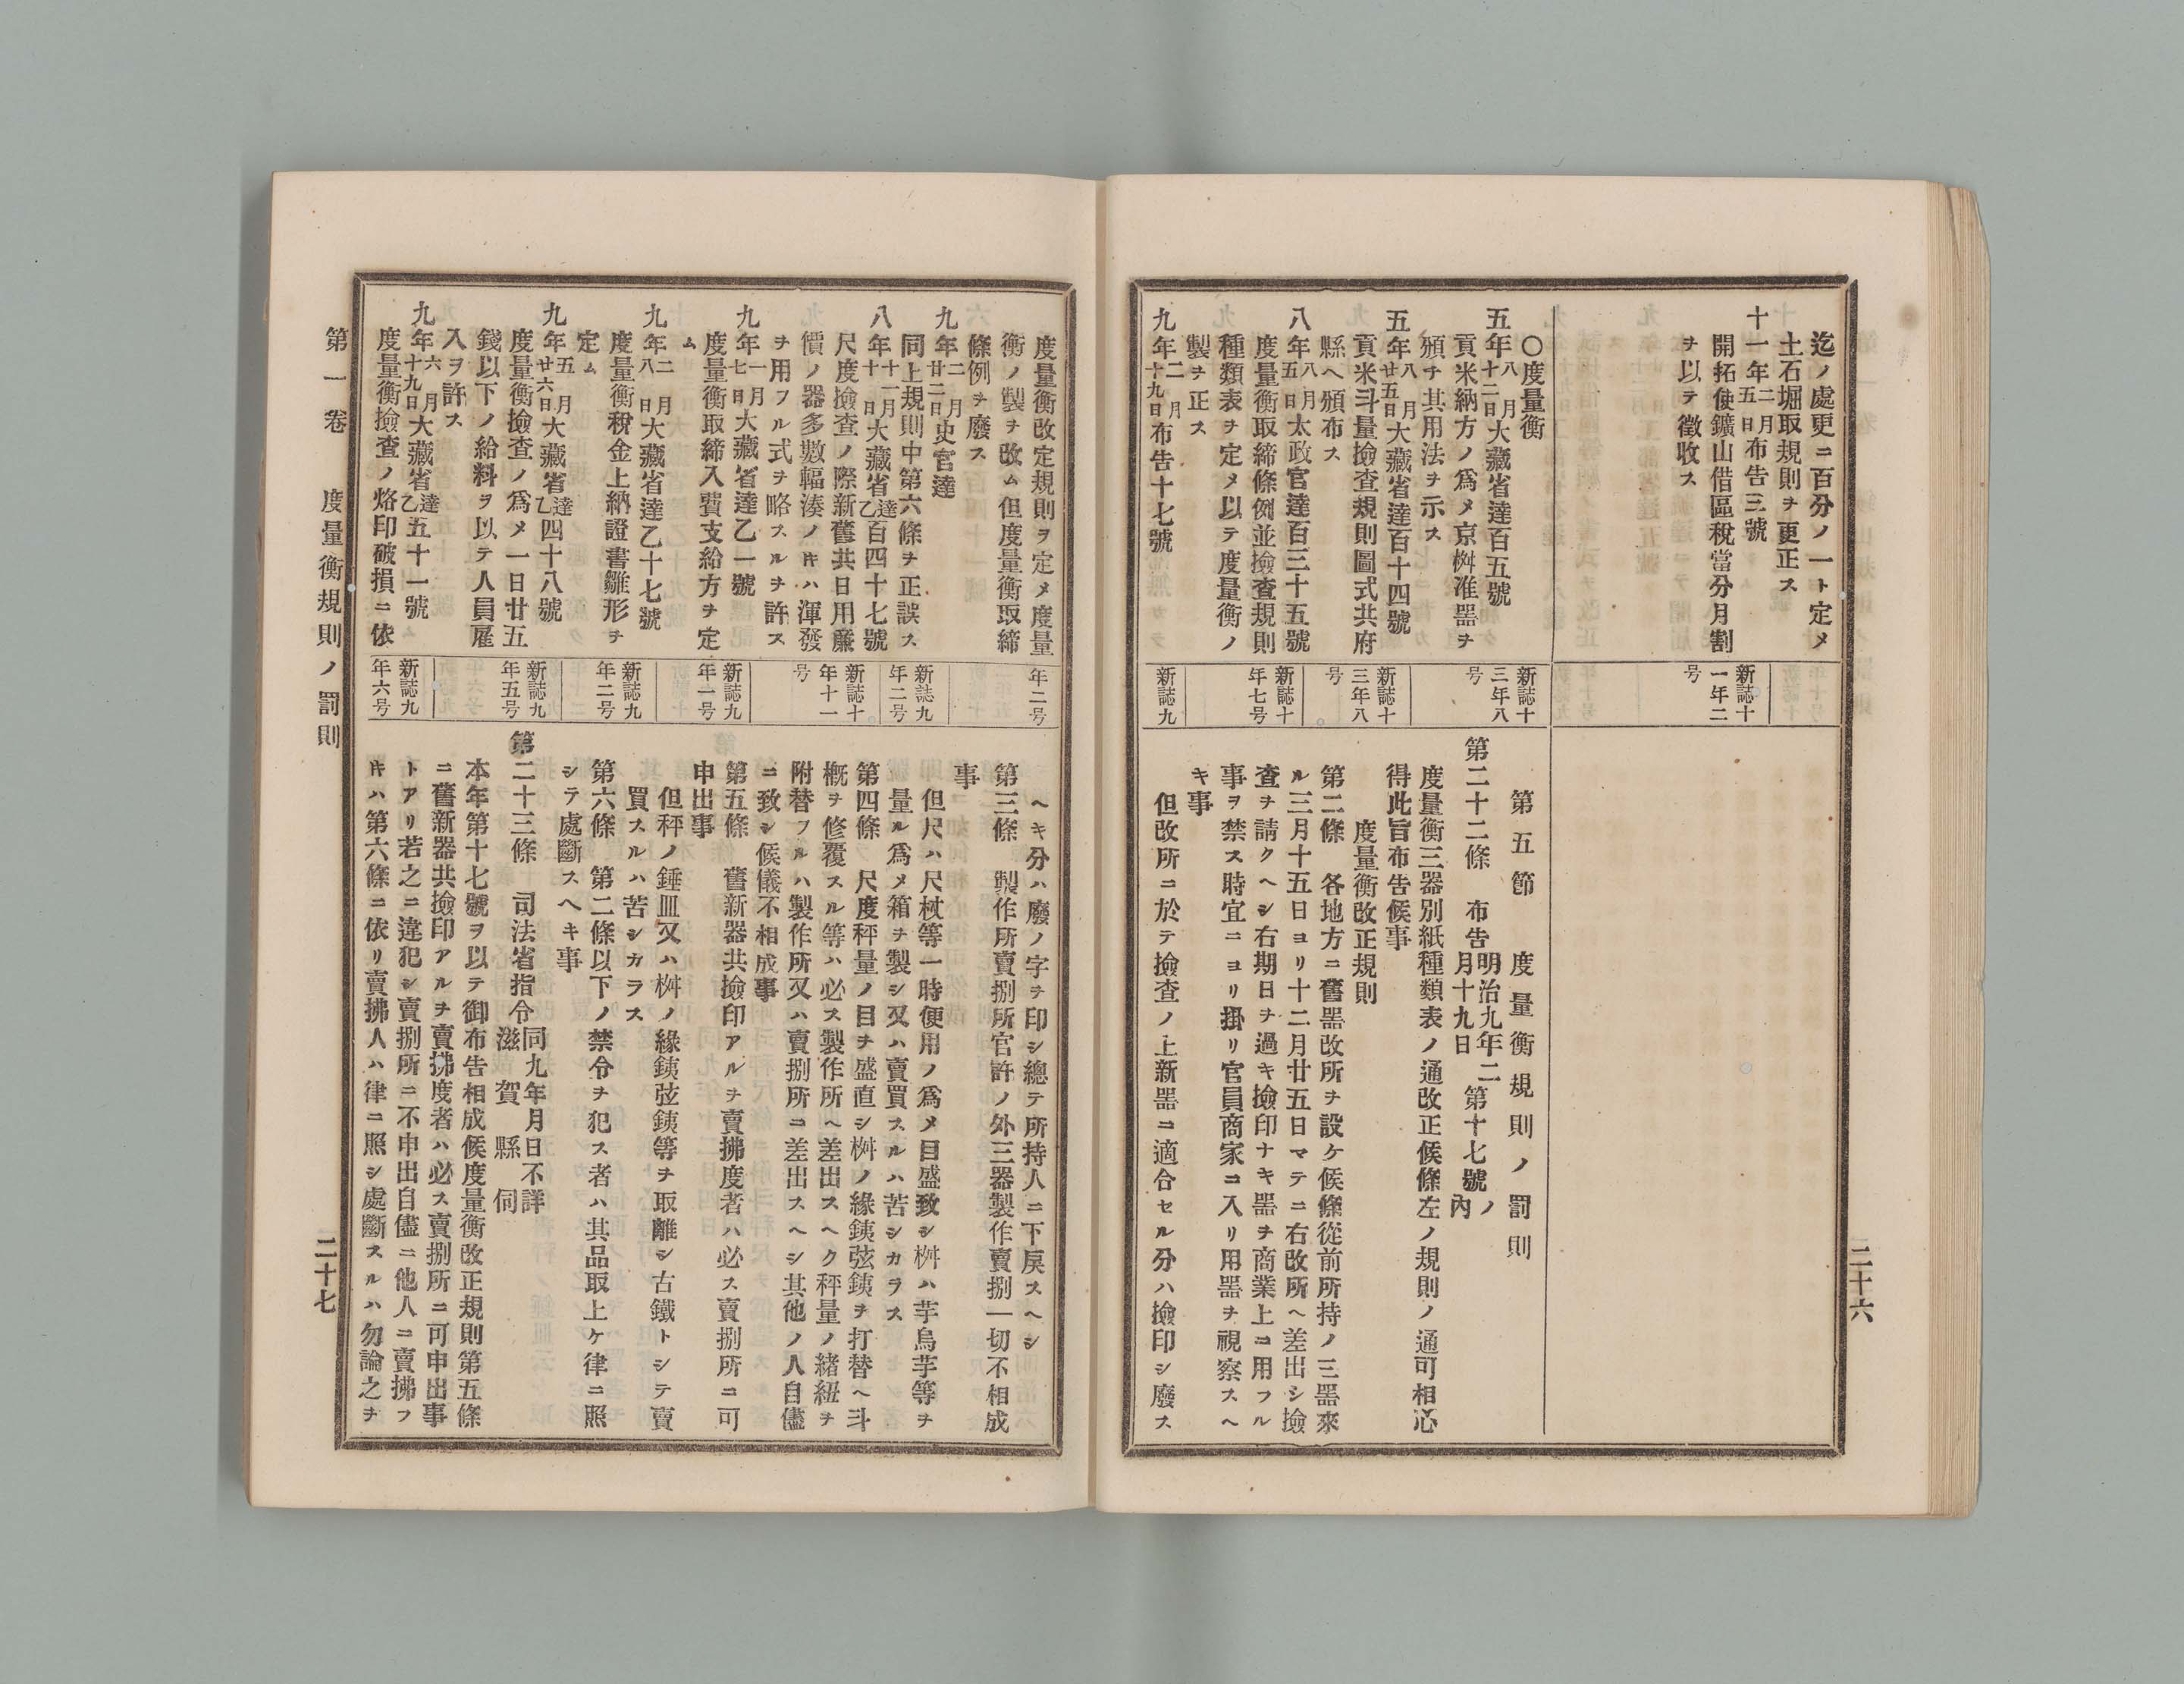 迄ノ處更ニ百分ノ一ト定メ
土石堀取規則ヲ更正ス
十一年二月五日布告三號
開拓使鑛山借區稅當分月割
ヲ以テ徵收ス
新誌十
一年二
号
〇度量衡
五年八月十二日大藏省達百五號
貢米納方ノ爲メ京桝准器ヲ
頒チ其用法ヲ示ス
新誌十
三年八
号
五年八月廿五日大藏省達百十四號
貢米斗量撿查規則圖式共府
縣ヘ頒布ス
新誌十
三年八
号
八年八月五日太政官達百三十五號
度量衡取締條例並撿查規則
種類表ヲ定メ以テ度量衡ノ
製ヲ正ス
新誌十
年七号
九年二月十九日布告十七號
新誌九
第五節　度量衡規則ノ罰則
第二十二條　布告　明治九年二月十九日　第十七號ノ內
度量衡三器別紙種類表ノ通改正候條左ノ規則ノ通可相心
得此旨布告候事
度量衡改正規則
第二條　各地方ニ舊器改所ヲ設ケ候條從前所持ノ三器來
ル三月十五日ヨリ十二月廿五日マテニ右改所ヘ差出シ撿
查ヲ請クヘシ右期日ヲ過キ撿印ナキ器ヲ商業上ニ用フル
事ヲ禁ス時宜ニヨリ掛リ官員商家ニ入リ用器ヲ視察スヘ
キ事
但改所ニ於テ撿查ノ上新器ニ適合セル分ハ撿印シ廢ス
二十六
度量衡改定規則ヲ定メ度量
衡ノ製ヲ改ム但度量衡取締
條例ヲ廢ス
年二号
九年二月廿二日史官達
同上規則中第六條ヲ正誤ス
新誌九
年二号
八年十一月十日大藏省達乙百四十七號
尺度撿查ノ際新舊共日用廉
價ノ器多數輻湊ノ㕯ハ渾發
ヲ用フル式ヲ略スルヲ許ス
新誌十
年十一
号
九年一月七日大藏省達乙一號
度量衡取締入費支給方ヲ定
ム
新誌九
年一号
九年二月八日大藏省達乙十七號
度量衡稅金上納證書雛形ヲ
定ム
新誌九
年二号
九年五月廿六日大藏省達乙四十八號
度量衡撿查ノ爲メ一日廿五
錢以下ノ給料ヲ以テ人員雇
入ヲ許ス
新誌九
年五号
九年六月十九日大藏省達乙五十一號
度量衡撿查ノ烙印破損ニ依
新誌九
年六号
ヘキ分ハ廢ノ字ヲ印シ總テ所持人ニ下戾スヘシ
第三條　製作所賣捌所官許ノ外三器製作賣捌一切不相成
事
但尺ハ尺杖等一時便用ノ爲メ目盛致シ桝ハ芋烏芋等ヲ
量ル爲メ箱ヲ製シ又ハ賣買スルハ苦シカラス
第四條　尺度秤量ノ目ヲ盛直シ桝ノ緣銕弦銕ヲ打替ヘ斗
概ヲ修覆スル等ハ必ス製作所ヘ差出スヘク秤量ノ緒紐ヲ
附替フルハ製作所又ハ賣捌所ニ差出スヘシ其他ノ人自儘
ニ致シ候儀不相成事
第五條　舊新器共撿印アルヲ賣拂度者ハ必ス賣捌所ニ可
申出事
但秤ノ錘皿又ハ桝ノ緣銕弦銕等ヲ取離シ古鐵トシテ賣
買スルハ苦シカラス
第六條　第二條以下ノ禁令ヲ犯ス者ハ其品取上ケ律ニ照
シテ處斷スヘキ事
第二十三條　司法省指令　同九年月日不詳　滋賀縣伺
本年第十七號ヲ以テ御布告相成候度量衡改正規則第五條
ニ舊新器共撿印アルヲ賣拂度者ハ必ス賣捌所ニ可申出事
トアリ若之ニ違犯シ賣捌所ニ不申出自儘ニ他人ニ賣拂フ
㕯ハ第六條ニ依リ賣拂人ハ律ニ照シ處斷スルハ勿論之ヲ
第一卷　度量衡規則ノ罰則　二十七